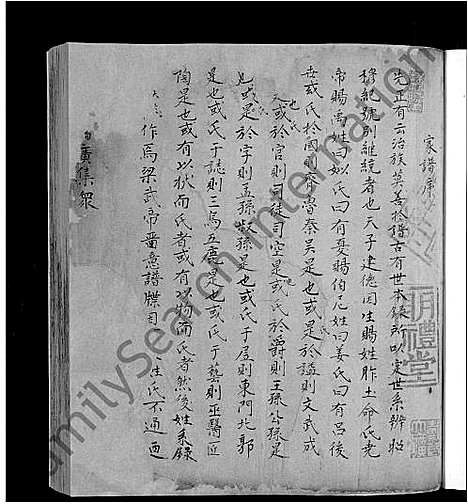 家譜序
先正有云治族莫善於譜古有世本錄所以定世系辨昭
穆紀號別継統者也天子建德因生賜姓胙土命氏堯
帝賜禹姓曰姒氏曰有夏賜伯尼姓曰姜氏曰有呂後
世或氏於國則齊魯秦吳是也或氏於謚則文武成
也或氏於官則司徒司空是也或氏於爵則王孫公孫是
也或是於字則孟孫叔孫是也或氏于居則東門北郭
是也或氏于誌則三烏五鹿是也或氏于藝則巫醫匠
陶是也或有以狄而氏者或有以物而氏者然後姓系錄
作焉梁武帝啻意譜牒司 姓氏不通西
廣集眾
明禮堂
FamilySearch International